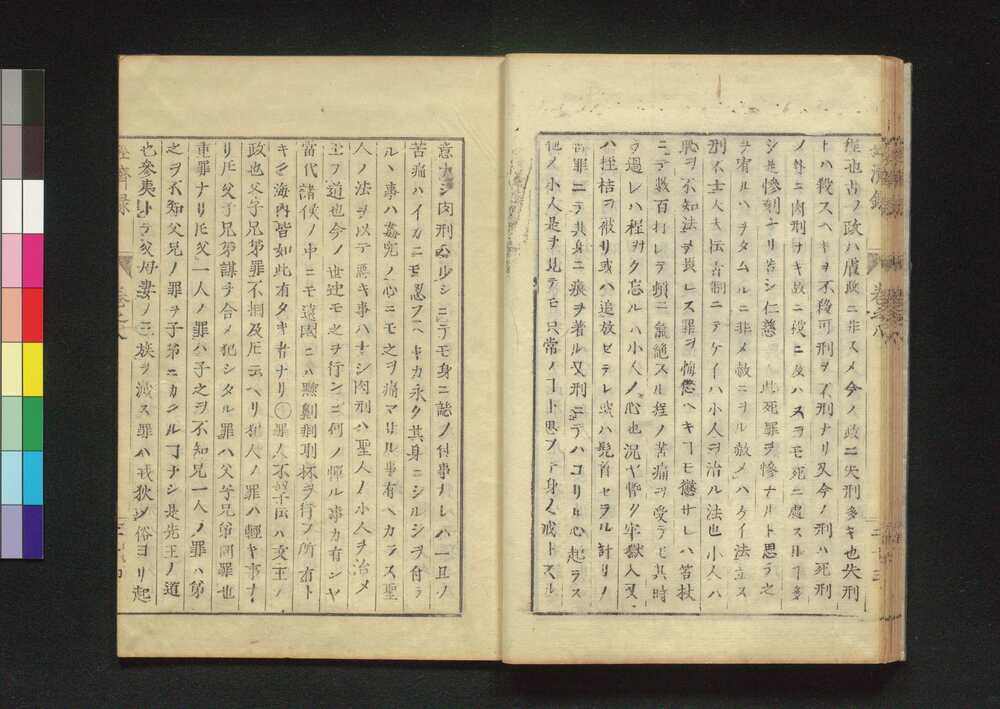 権也古ノ政ハ虐政ニ非スメ今ノ政ニ失刑多キ也失刑
トハ殺スヘキヲ不殺可刑ヲ不刑ナリ又今ノ刑ハ死刑
ノ外ニ肉刑ナキ故ニ殺ニ及ハスヲモ死ニ處スルヿ多
シ是惨刻ナリ苦シ仁慈 此死罪ヲ惨ナルト思ラ之
ヲ宥ルハヲタムルニ非メ赦ニヲル赦メハケイ法立ス
刑不士大夫ト云古制ニテケイハ小人ヲ治ル法也小人ハ
恥ヲ不知法ヲ畏レス罪ヲ悔懲ヘキヿモ懲サレハ笞杖
ニテ數百打レテ頻ニ氣絶スル程ノ苦痛ヲ受ラモ其時
ヲ過レハ程ヲク忘ルハ小人ノ心也況ヤ暫ク牢獄入又
ハ桎梏ヲ被リ或ハ追放セラレ或ハ髡首セラルヽ計リノ
罪ニテ其身ニ痕ヲ著ル又刑ニテハコリル心起ラス
他ノ小人是ヲ見テモ只常ノヿト思フテ身ノ戒トスル
意ナシ肉刑ハルシニテモ身ニ誌ノ付事ナレハ一旦ノ
苦痛ハイカニモ忍フヘキカ永ク其身ニシルシヲ付ラ
ルヽ事ハ姦兇ノ心ニモ之ヲ痛マサル事有ヘカラス聖
人ノ法ヲ以テ惡キ事ハナシ肉刑ハ聖人ノ小人ヲ治メ
玉フ道也今ノ世迚モ之ヲ行ンニ何ノ憚ル事カ有ンヤ
當代諸侯ノ中ニモ遠國ニハ黥劓剕刖抔ヲ行フ所有ト
キク海内皆如此有タキ者ナリ〇罪人不孥ト云ハ文王ノ
政也父子兄第罪不相及圧云ヘリ犯人ノ罪ハ輕キ事ナ
リ圧父子兄第謀ヲ合メ犯シタル罪ハ父子兄第同罪也
重罪ナリ圧父一人ノ罪ハ子之ヲ不知兄一人ノ罪ハ第
之ヲ不知父兄ノ罪ヲ子第ニカクルヿナシ是先王ノ道
也參夷トテ父母妻ノ三族ヲ滅ス罪ハ戎狄ノ俗ヨリ起
經濟録
巻之八